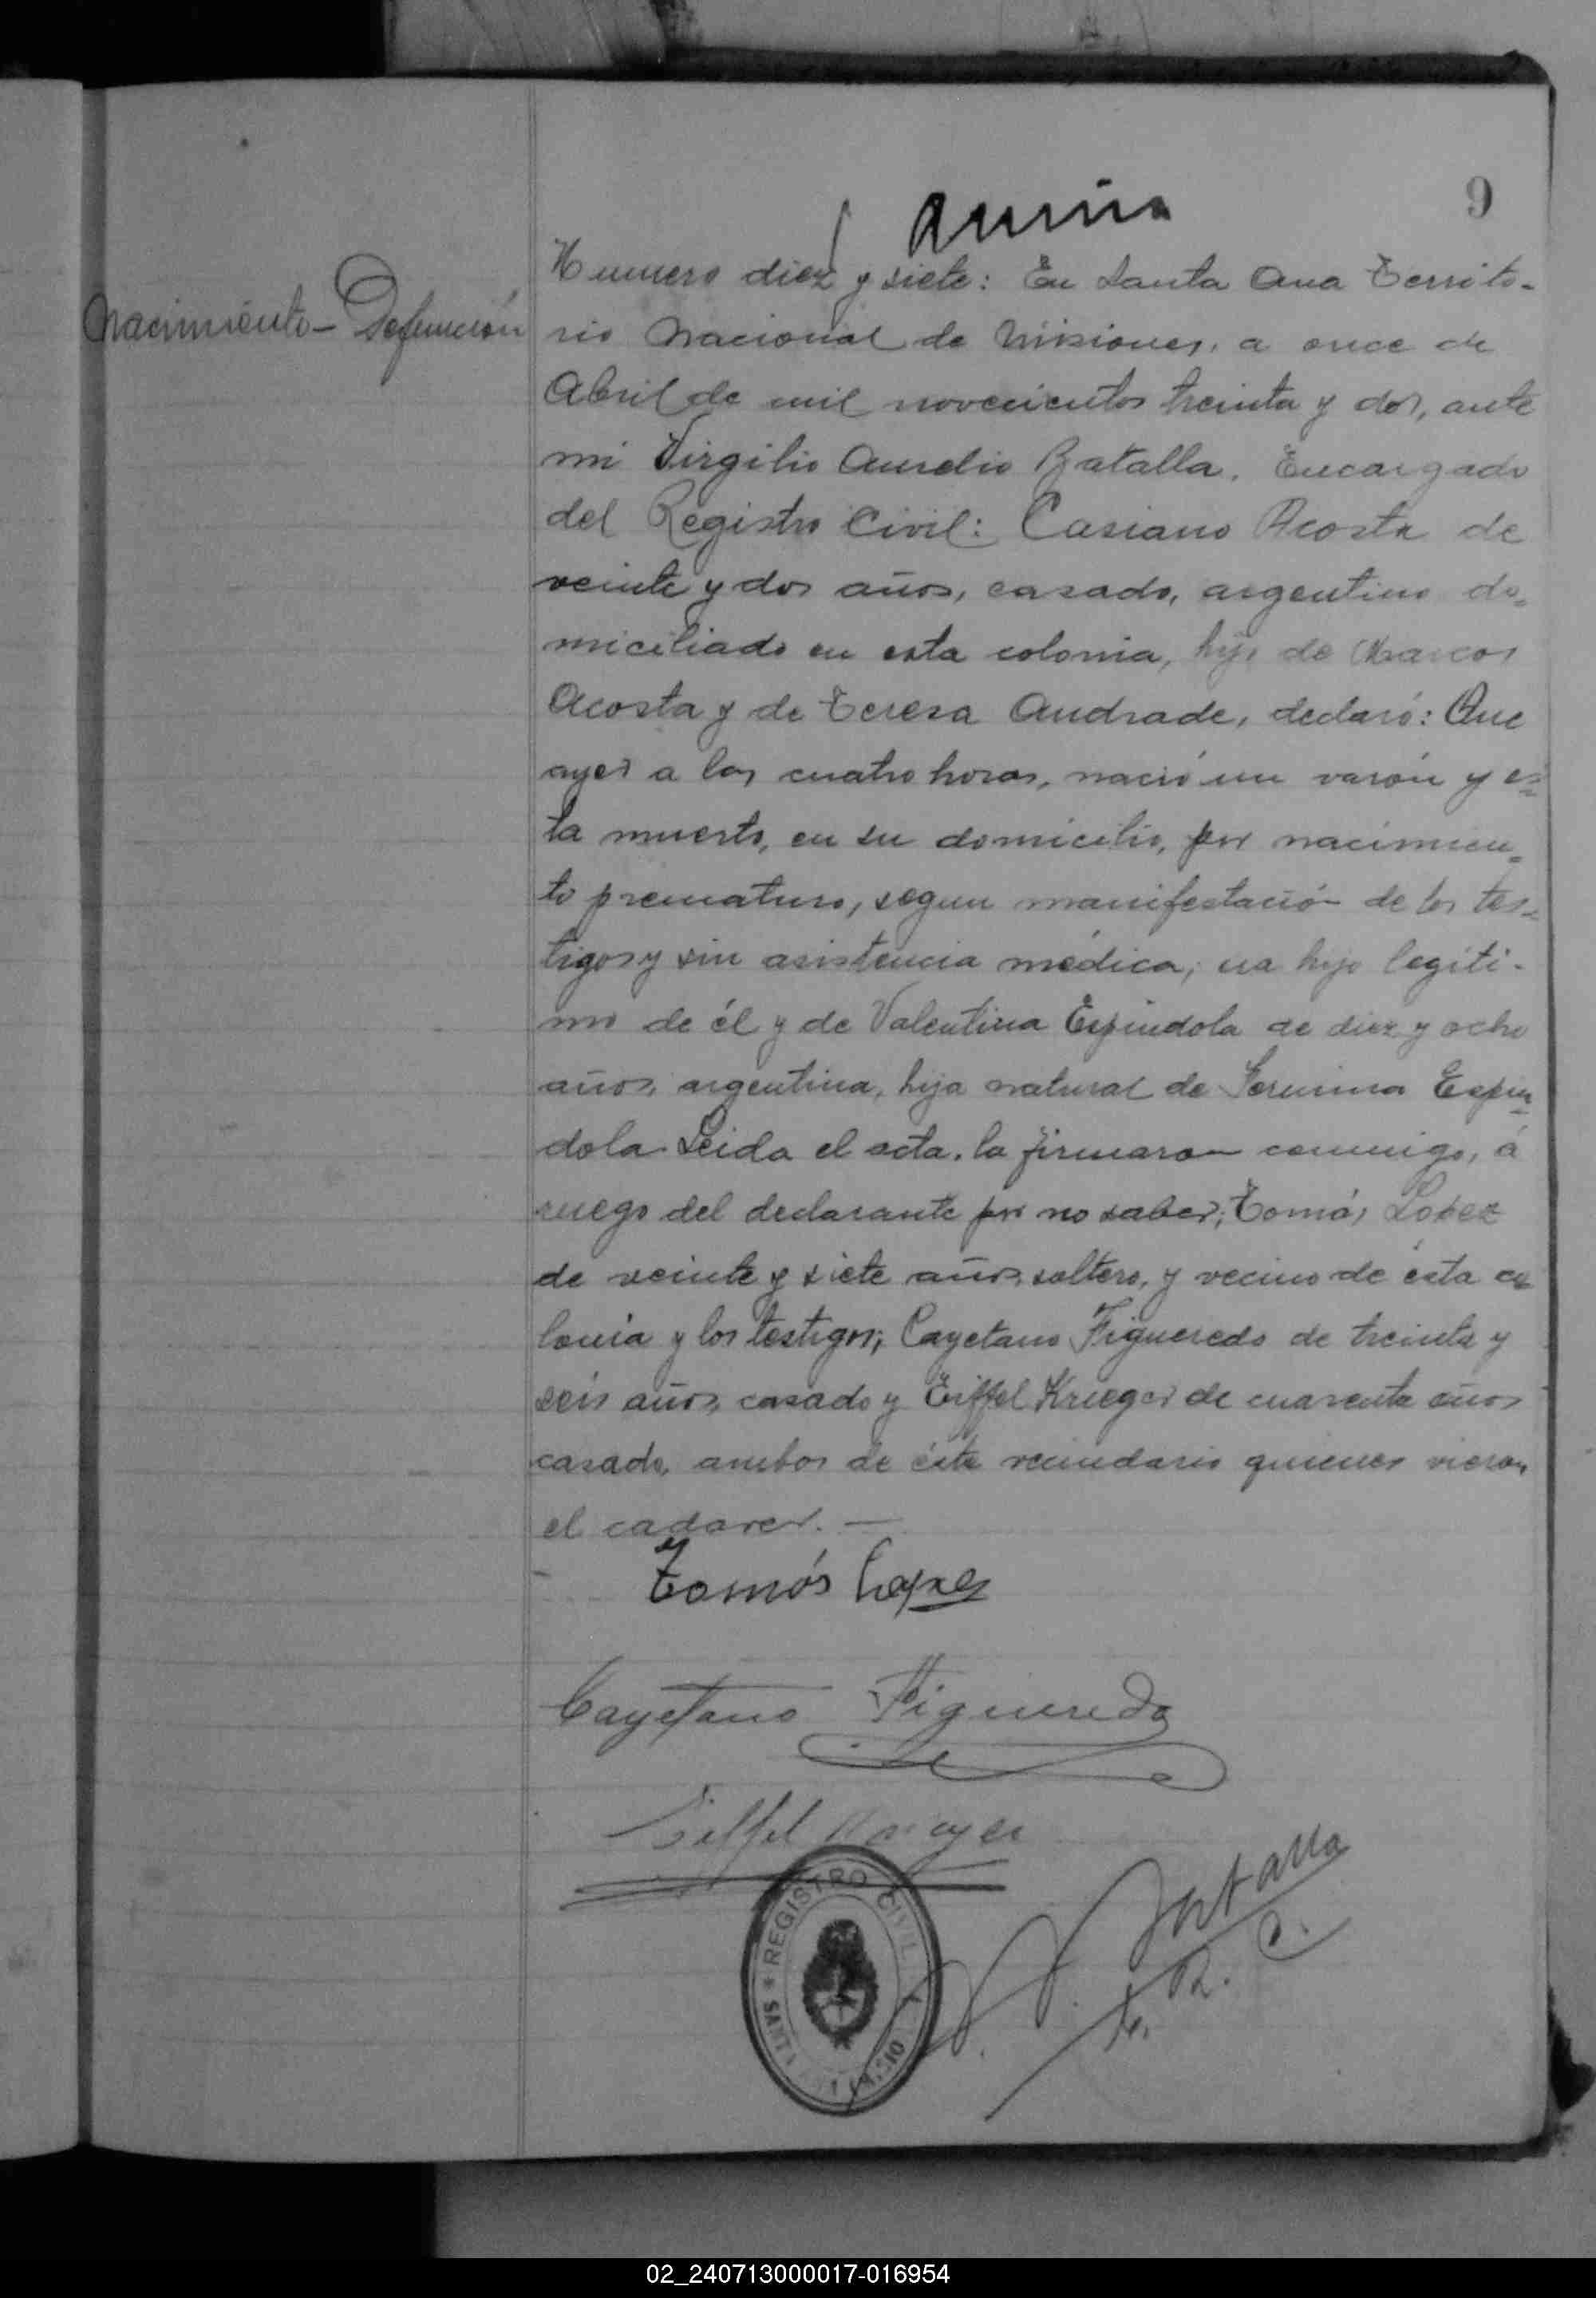 9
Numero diez y siete: En Santa Ana Territo-
Nacimiento - Defunción
rio Nacional de Misiones, a once de
Abril de mil novecientos treinta y dos, ante
mi Virgilio Aurelio Batalla, Encargado
del Registro Civil: Casiano Acosta de
veinte y dos años, casado, argentino do-
miciliado en esta colonia, hijo de Marcos
Acosta y de Teresa Andrade, declaró: Que
ayer a las cuatro horas, nació un varón y es-
ta muerto, en su domicilio, por nacimien-
to prematuro, segun manifestación de los tes-
tigos y sin asistencia médica; era hijo legiti-
mo de él y de Valentina Espindola de diez y ocho
años, argentina, hija natural de Espin-
dola. Leida el acta, la firmaron conmigo, á
ruego del declarante por no saber; Tomás Lopez
de veinte y siete años, soltero, y vecino de ésta co-
lonia y los testigos; Cayetano Figueredo de treinta y
seis años, casado y Eiffel Krieger de cuarenta años
casado, ambos de éste vecindario quienes vieron
el cadaver. —
Tomás Lopez
Cayetano Figueredo
Eiffel
Batalla
E. R. C.
REGISTRO CIVIL
SANTA
02_240713000017-016954